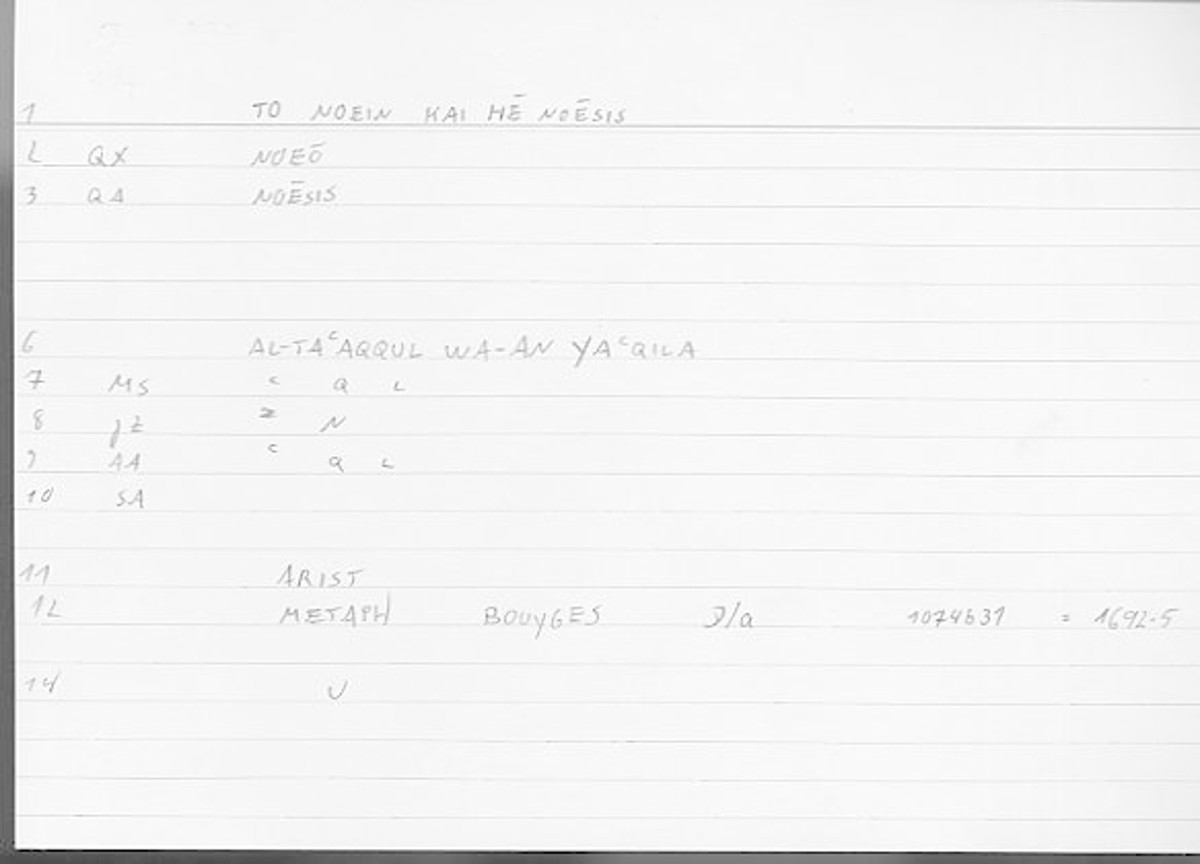 1 TO NOEIN KAI HĒ NOĒSIS
2 QX NOEŌ
3 QA NOĒSIS
6 AL-TAʿAQQUL WA-AN YAʿQILA
7 MS ʿ Q L
8 N
9 AA ʿ Q L
10 SA
11 ARIST
12 METAPH BOUYGES 1074b31 = 1692.5
14 U